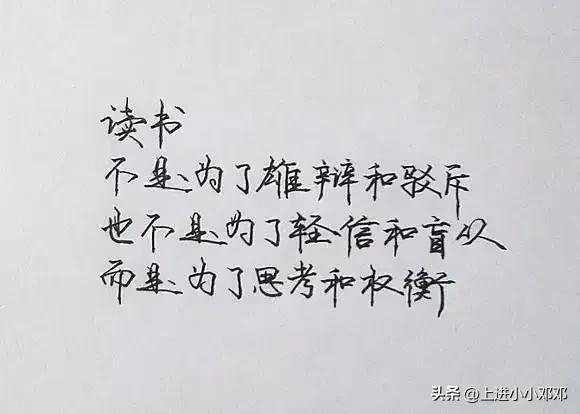 读书
不是为了雄辩和驳斥
也不是为了轻信和盲从
而是为了思考和权衡
头条 @上进小小邓邓